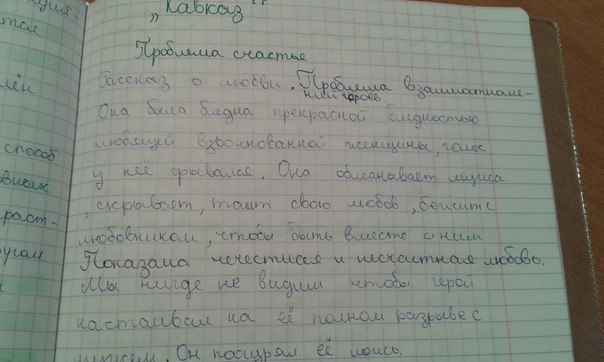 „Кавказ"
Проблема счастье
Рассказ о любви. Проблема взаимоотноше-
ний героев.
Она была бледна прекрасной бледностью
любящей взволнованной женщины, голос
у неё срывался. Она обманывает мужа
, скрывает, таит свою любов, бежит с
любовником, чтобы быть вместе с ним
Показана нечестная и несчастная любовь.
Мы нигде не видим чтобы герой
настаивал на её полном разрыве с
мужем. Он поощрял её
лён
способ
раст-
ругам